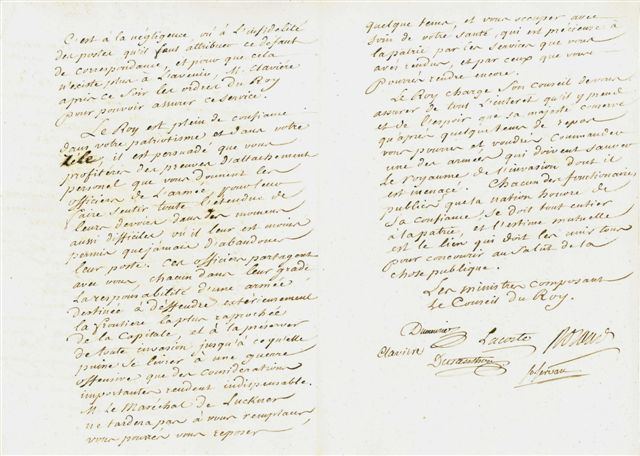 C'est à la negligence, où à l'infidelité
des postes qu'il faut attribuer ce defaut
de correspondance, et pour que cela
n'existe plus à l'avenir, M. Claviére
a pris ce Soir les ordres du Roy
pour pouvoir assurer ce service.
Le Roy est plein de confiance
dans votre patriotisme et dans votre
Zéle, il est persuadé que vous
profiterés des preuves d'attachement
personel que vous donnent les
officiers de L'armée, pour leur
faire sentir toute l'etendue de
leurs devoirs dans des momens
aussi difficiles où il leur est moins
permis que jamais d'abandonner
leur poste. Ces officiers partagent
avec vous, chacun dans leur grade
La responsabilité d'une armée
destinée à deffendre exterieurement
la frontiere la plus raprochée
de la Capitale, et à la préserver
de toute invasion jusqu'à ce qu'elle
puisse se livrer à une guerre
offensive que des considerations
importantes rendent indispensable.
M. Le Maréchal de Luckner
ne tardera pas à vous remplacer,
vous pourrés vous reposer
quelque tems, et vous occuper avec
soin de votre santé, qui est précieuse à
la patrie par les services que vous
avés rendus, et par ceux que vous
pourrés rendre encore.
Le Roy charge son Conseil de vous
assurer de tout l'interet qu'il y prend
et de l'espoir que sa majesté conserve
qu'après quelque tems de repos
vous pourrés et voudrés Commander
une des armées qui doivent sauver
le royaume de l'invasion dont il
est menacé. Chacun des fonctionaires
publics que la nation honore de
sa confiance, se doit tout entier
à la patrie, et l'estime mutuelle
est le lien qui doit les unir tous
pour concourir au salut de la
chose publique.
Les ministres composant
le Conseil du Roy.
Dumourier Lacoste Roland
Claviére Duranthon
Servan